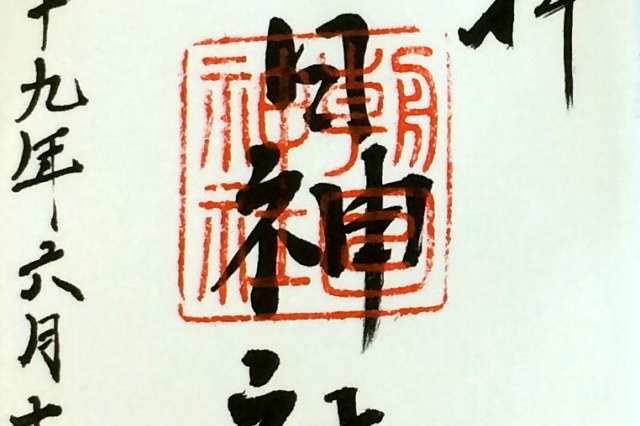 拝
日神社
朝日
神社
十九年六月十